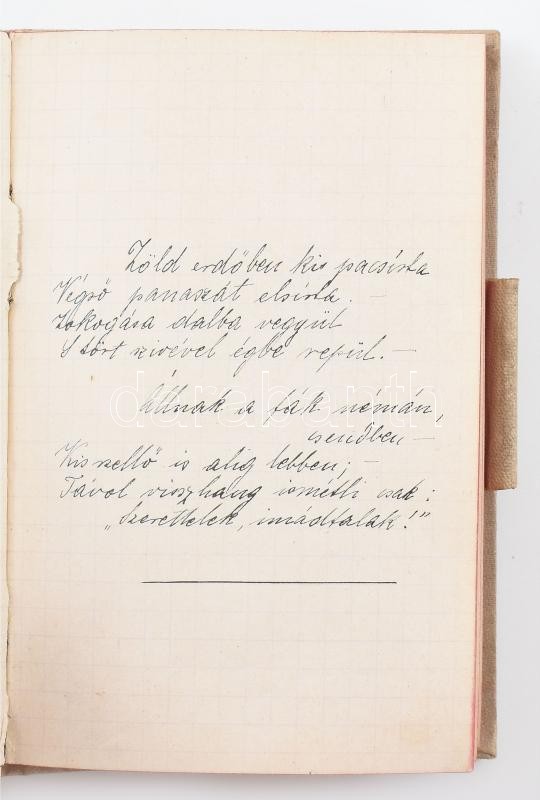 Zöld erdőben kis pacsirta
Végső panaszát elsírta. –
Zokogása dalba vegyül
S tört szivével égbe repül. –
Állnak a fák némán,
csendben –
Kis szellő is alig lebben; –
Távol viszhang ismétli csak:
„Szerettelek, imádtalak!"
darabanth